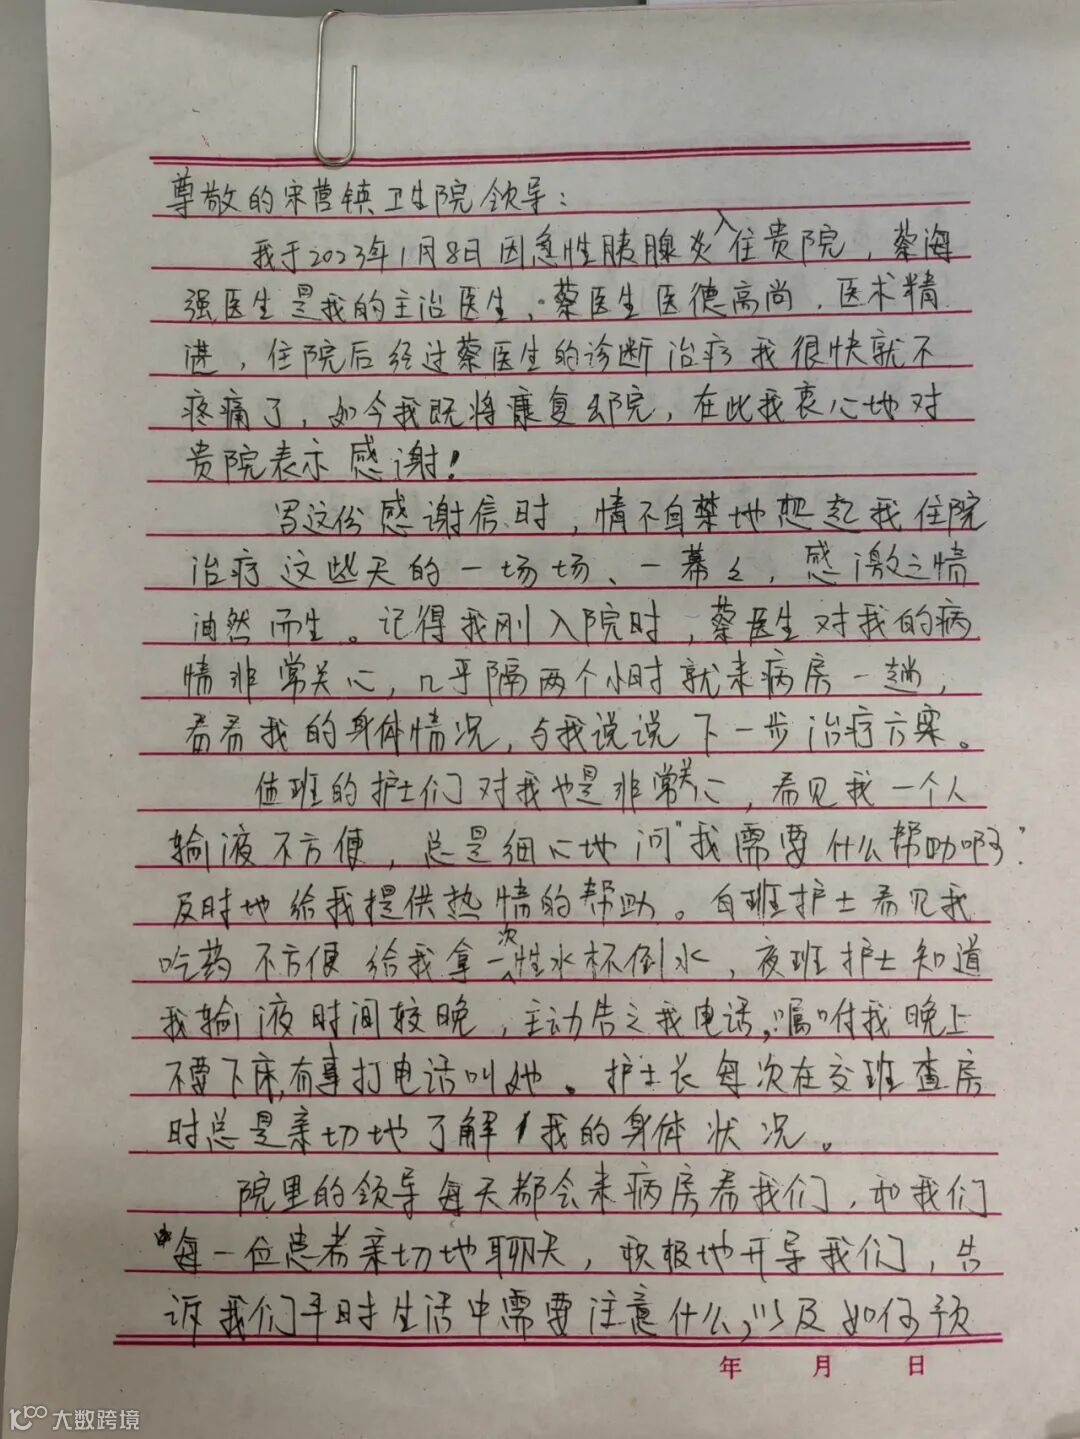 尊敬的宋营镇卫生院领导：
我于2023年1月8日因急性胰腺炎入住贵院，蔡海
强医生是我的主治医生，蔡医生医德高尚，医术精
进，住院后经过蔡医生的诊断治疗我很快就不
疼痛了，如今我既将康复出院，在此我衷心地对
贵院表示感谢！
写这份感谢信时，情不自禁地想起我住院
治疗这些天的一场场、一幕々，感激之情
油然而生。记得我刚入院时，蔡医生对我的病
情非常关心，几乎隔两个小时就来病房一趟，
看看我的身体情况，与我说说下一步治疗方案。
值班的护士们对我也是非常关心，看见我一个人
输液不方便，总是细心地问"我需要什么帮助啊？"
及时地给我提供热情的帮助。白班护士看见我
吃药不方便给我拿一次性水杯倒水，夜班护士知道
我输液时间较晚，主动告之我电话，嘱咐我晚上
不要下床，有事打电话叫她。护士长每次在交班查房
时总是亲切地了解我的身体状况。
院里的领导每天都会来病房看我们，和我们
每一位患者亲切地聊天，积极地开导我们，告
诉我们平时生活中需要注意什么，以及如何预
年 月 日
大数跨境